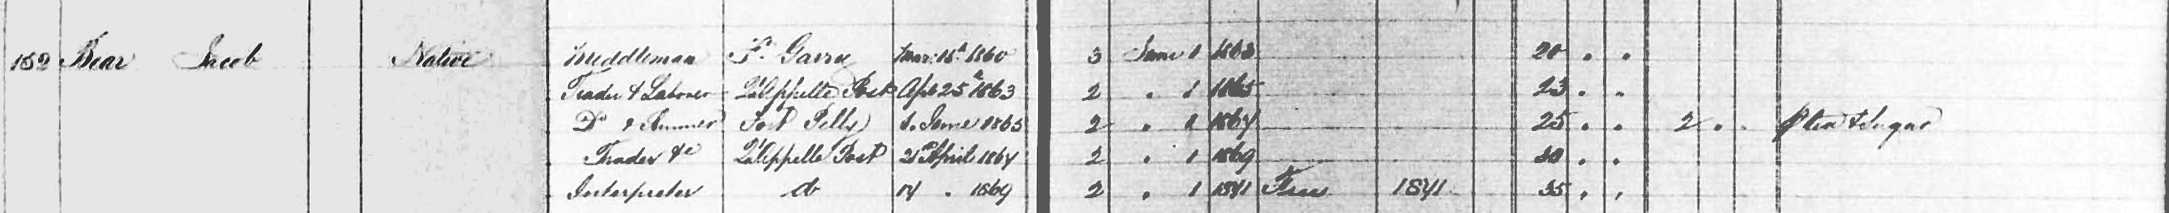 152 Bear Jacob Native Middleman Ft. Garry Mar: 16th 1860 3 June 1 1863 20 . .
Trader & Laborer Qu'Appelle Post Apl 25th 1863 2 . 1 1865 23 . .
Do & Runner Fort Pelly 1. June 1865 2 . 1 1867 25 . . 2 . . Tea & Sugar
Trader &c Qu'Appelle Post 21st April 1867 2 . 1 1869 30 . .
Interpreter do 14 . 1869 2 . 1 1871 Free 1871 35 . .